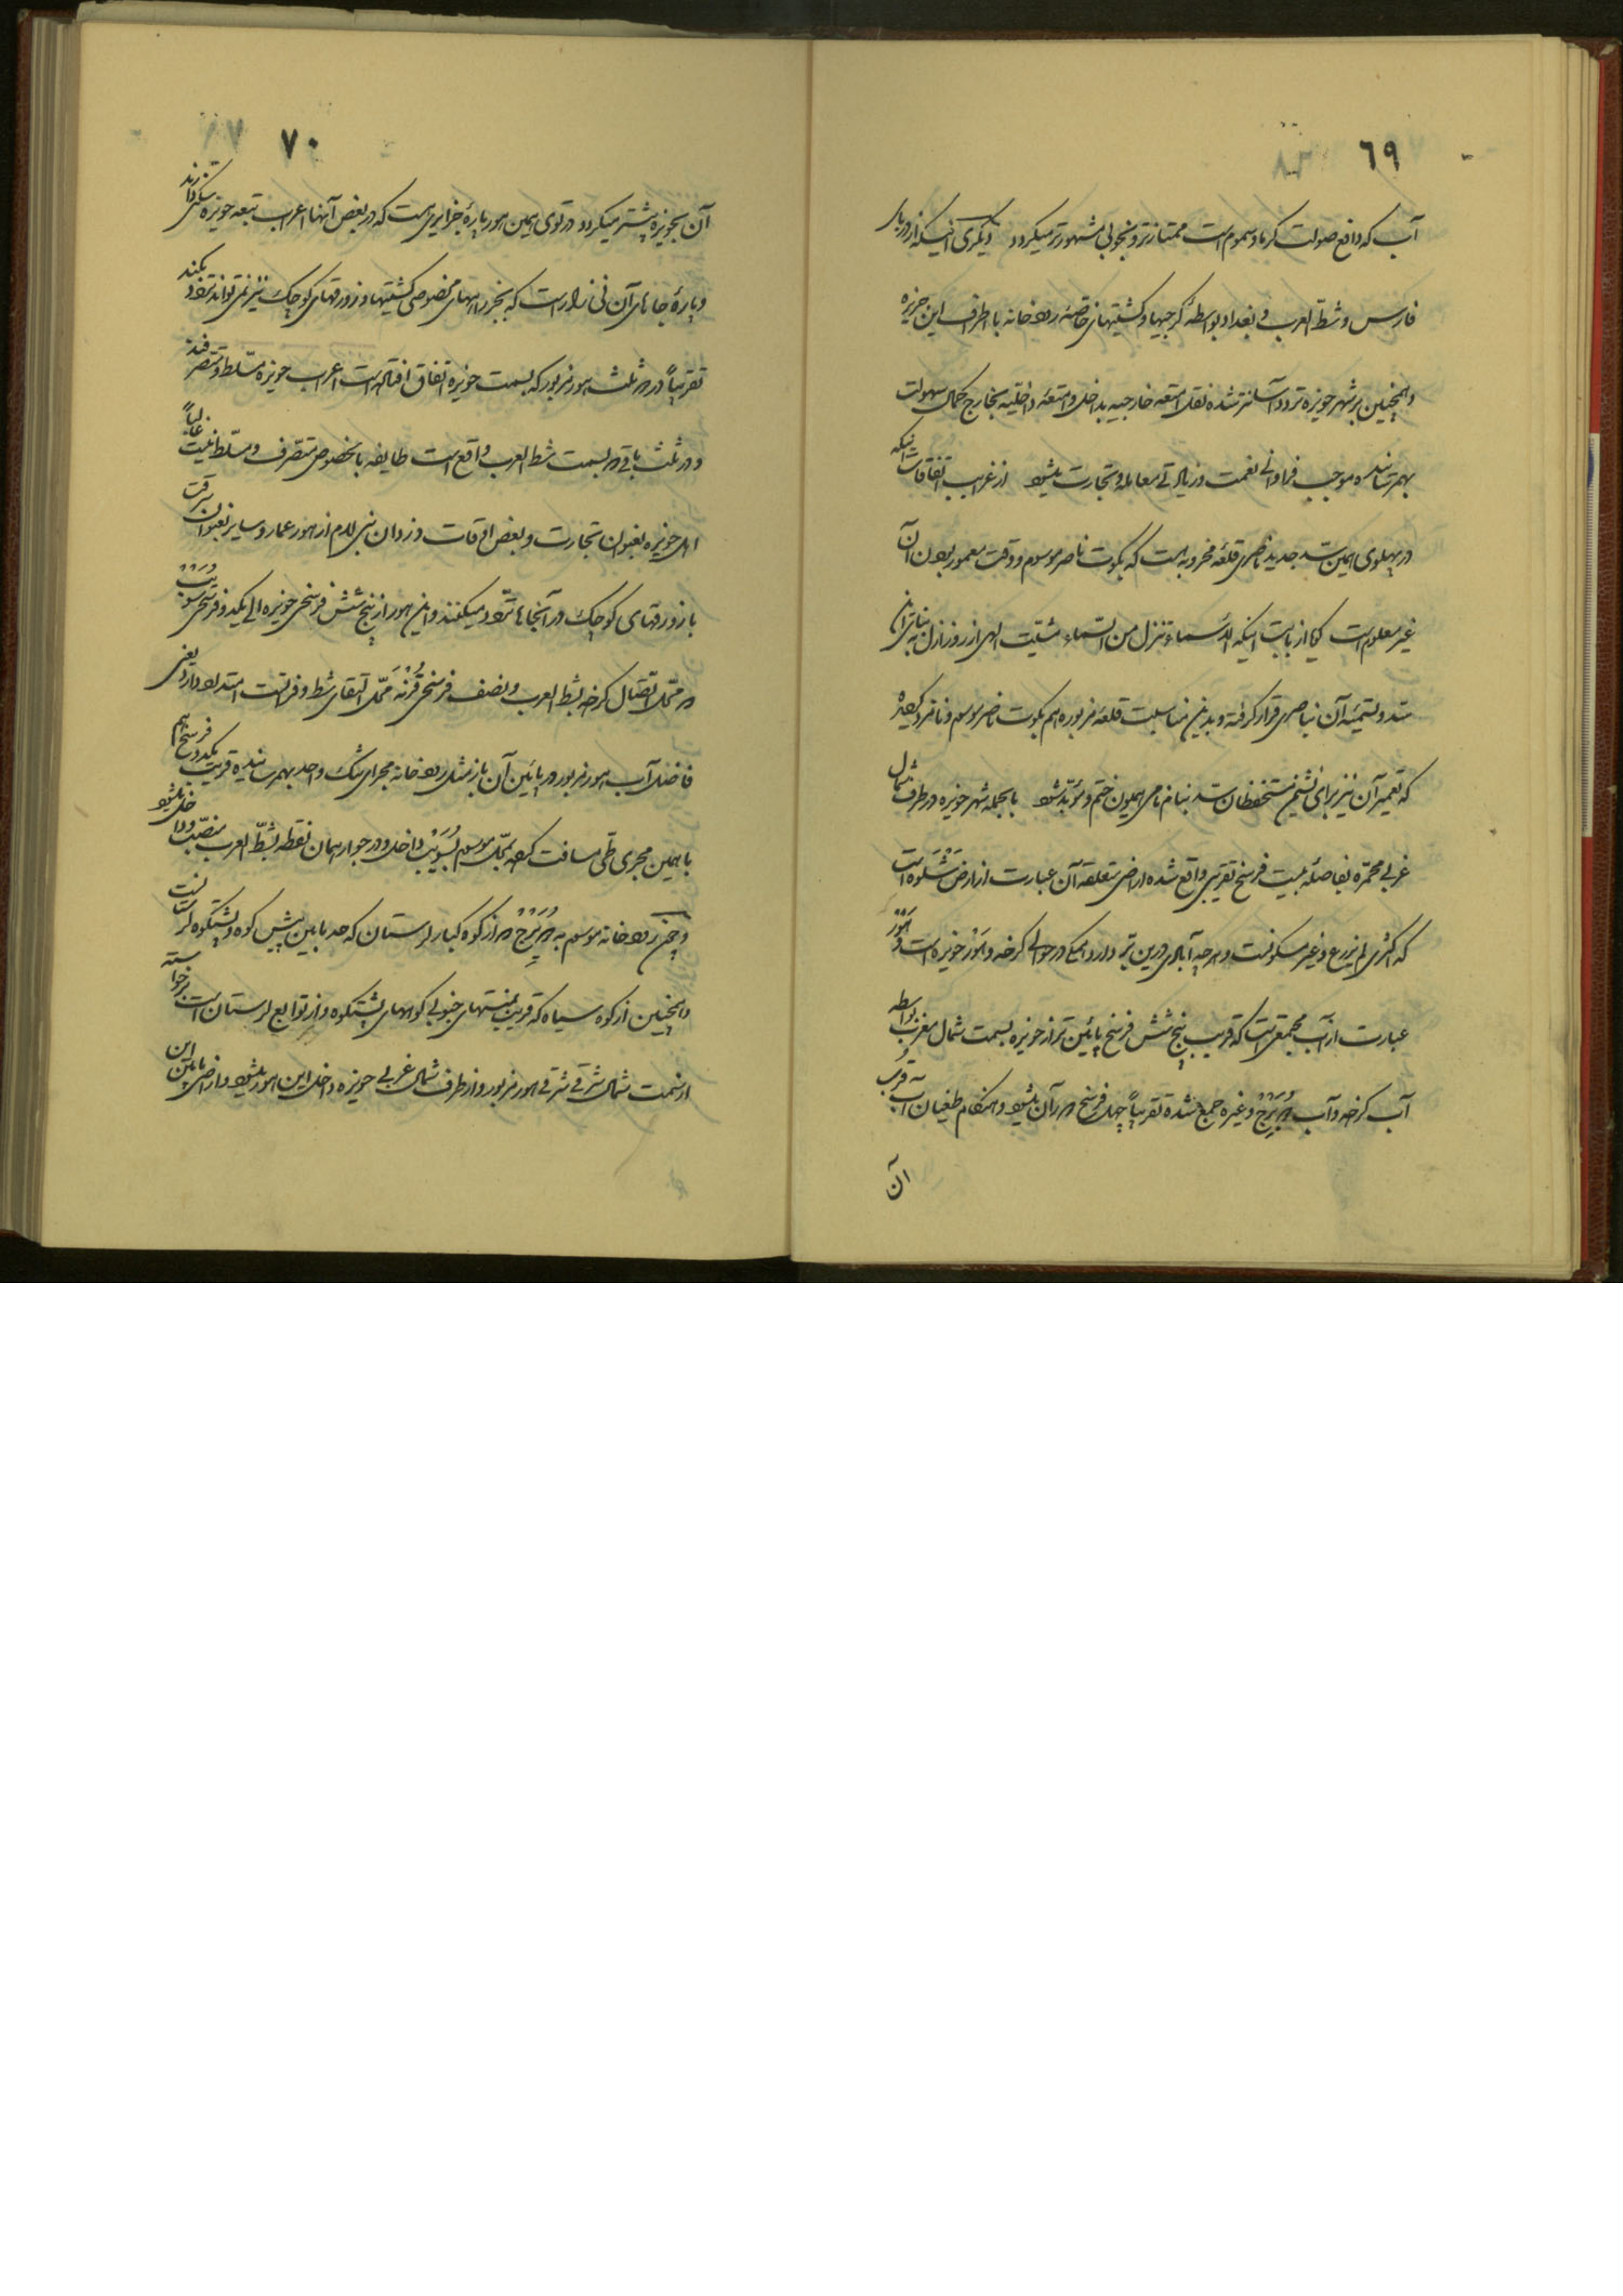 ٦٩
آب که دافع صولت گرما و سموم است ممتازتر و بخوبی مشهورتر میگردد دیگری اینکه از دریای
فارس و شط العرب و بغداد بواسطهٔ کرجیها و کشتیهای خاصهٔ رودخانه باطراف این جزیره
و همچنین بر شهر حویزه تردد آسانتر شده نقل امتعه خارجیه بداخل و امتعه داخلیه بخارج کمال سهولت
بهمرسانده موجب فراوانی نعمت و زیادتی معامله و تجارت میشود از غرایب اتفاقات اینکه
در پهلوی همین سد جدید ناصری قلعهٔ مخروبه هست که بکوت ناصر موسوم و وقت معمور بودن آن
غیر معلوم است گویا از بابت اینکه الاسماء تنزل من السماء مشیت الهی از روز ازل به بنای این
سد و تسمیهٔ آن بناصری قرار گرفته و بدین مناسبت قلعه مزبوره هم بکوت ناصر موسوم و نامزد گردیده
که تعمیر آن نیز برای نشیمن مستحفظان سد بنام نامی همیون ختم و مؤبد شود بالجمله شهر حویزه در طرف شمال
غربی محمره بفاصلهٔ بیست فرسخ تقریبی واقع شده اراضی متعلقهٔ آن عبارت از ارض است
که اکثری لم یزرع و غیر مسکونست و هر چه آبادی درین بر دارد همگی در حوالی کرخه و هور حویزه است و هور
عبارت از آب مجتمعی است که قریب پنج شش فرسخ پائین تر از حویزه بسمت شمال مغرب بواسطه
آب کرخه و آب دویرج و غیره جمع شده تقریباً چهل فرسخ در آن میشود و هنگام طغیان آب به قرب
آن
٧٠
آن بحویزه بیشتر میگردد در توی همین هور پارهٔ جزایری هست که در بعض آنها اعراب تبعه حویزه سکنی دارند
و پارهٔ جاهای آن نی زار است که بجز راههای مخصوصی کشتیها و زورقهای کوچک نیز نمی تواند تردد بکند
تقریباً در دو ثلث هور مزبور که بسمت حویزه اتفاق افتاده است اعراب حویزه مسلط و متصرفند
و در ثلث باقی که بسمت شط العرب واقع است طایفه بالخصوص متصرف و مسلط نیست غالباً
اهل حویزه بعنوان تجارت و بعض اوقات دزدان بنی لام از هور عماره و سایر بعنوان سرقت
با زورقهای کوچک در آنجاها تردد میکنند و این هور از پنج شش فرسخی حویزه الی یکدو فرسخی سویب
در محل اتصال کرخه بشط العرب و نصف فرسخی قرنه محل التقای شط و فراتست امتداد دارد یعنی
فاضل آب هور مزبور در پائین آن باز مثل رودخانه مجرای تنک واحد بهمرسانیده قریب یکدو فرسخ هم
با همین مجری طی مسافت کرده بمحل موسوم بسویب داخل و در جوار همان نقطه بشط العرب منصب و داخل میشود
و چند رودخانه موسوم به دویرج که از کوه کبار لرستان که حد مابین پیش کوه و پشتکوه لرستانست
و همچنین از کوه سیاه که قریب بمنتهای جنوبی کوههای پشتکوه و از توابع لرستان است برخواسته
از سمت شمال شرقی شرقی هور مزبور و از طرف شمال غربی حویزه داخل این هور میشود و اراضی مابین این